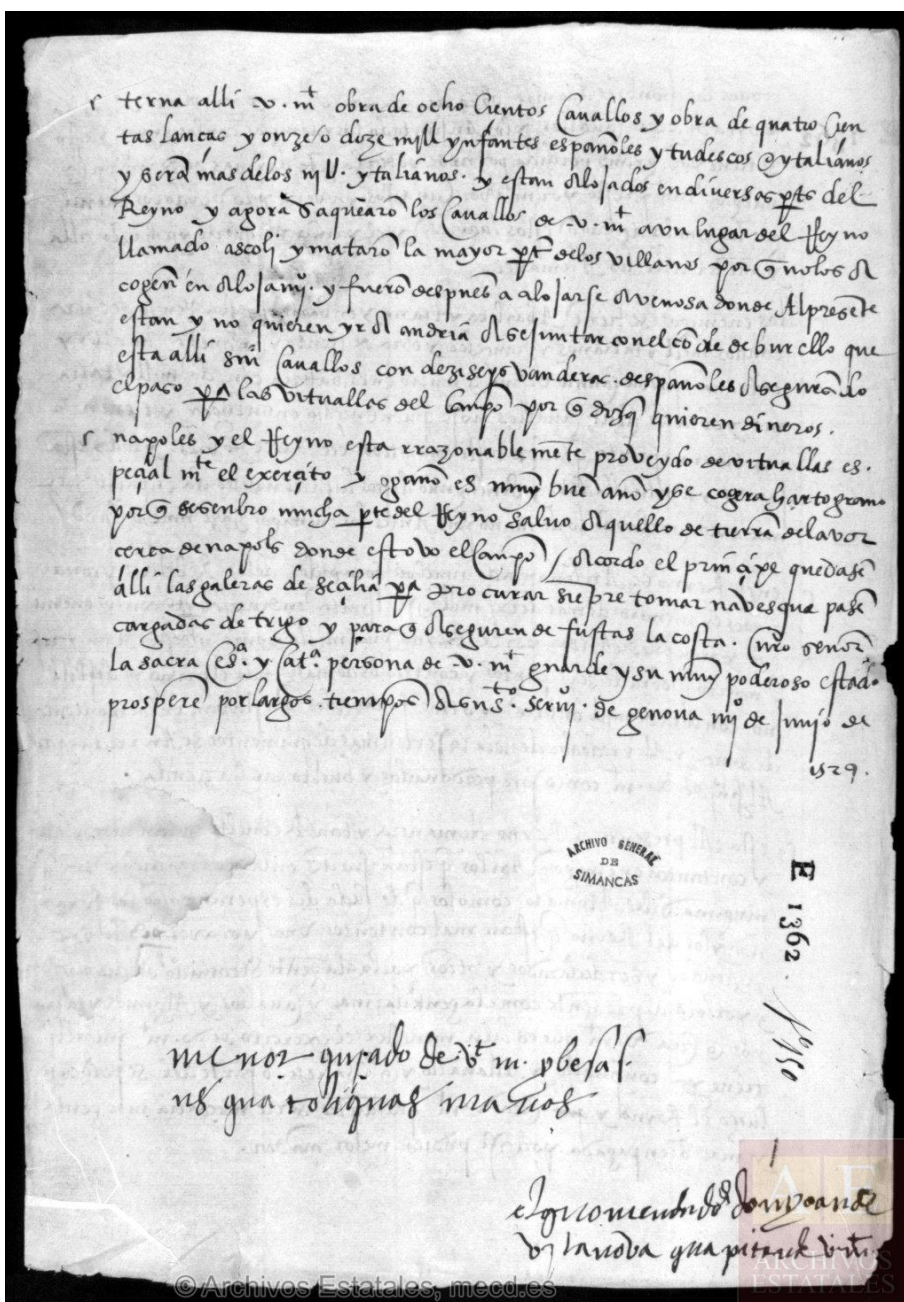 terna alli v. mt obra de ocho cientos Cavallos y obra de quatro cien
tas lanças y onze o doze mill ynfantes españoles y tudescos e ytalianos
y será mas delos iij U. ytalianos. y estan alojados en diversas pts del
Reyno y agora saquearō los Cavallos de v. mt a un lugar del Reyno
llamado ascoli y matarō la mayor pt delos villanos por q no los a
cogeñ en alojami. y fuerō despues a alojarse a venosa donde Al presente
estan y no quieren yr a andria a se juntar con el cōde de burello que
esta alli Cavallos con deziseys vanderas despañoles asegurādo
el paso pa las vituallas del campo por q dizē quieren dineros.
napoles y el Reyno esta rrazonable mēte proveydo de vituallas es.
peçial mte el exerçito y ogaño es muy buē año y se cogera harto grano
por q se senbro mucha pte del Reyno salvo aquello de tierra de lavor
cerca de napols donde estovo el campo Acordo el prinçipe quedasē
alli las galeras de secilia pa procurar sienpre tomar naves que pasē
cargadas de trigo y para q aseguren de fustas la costa. nro señor
la sacra Ces.a y Cat.a persona de v. mt guarde y su muy poderoso estado
prospere por largos tiempos a su sto. servi. de genova iiijo de junio de
1529.
ARCHIVO GENERAL
DE
SIMANCAS
E 1362. fo 150
menor qriado de vt m. q besa s.
us quatoliquas manos
el qomendador don yoan de
vilanova qapitan
AE
ARCHIVOS
ESTATALES
© Archivos Estatales, mecd.es